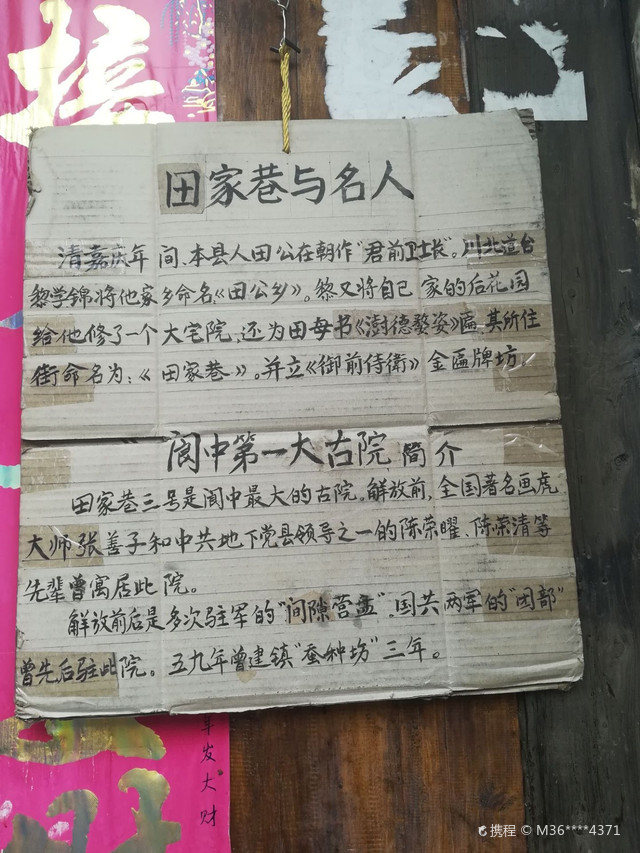 接
田家巷与名人
清嘉庆年间、本县人田公在朝作“君前卫士长”。川北道台
黎学锦、将他家乡命名《田公乡》。黎又将自己家的后花园
给他修了一个大宅院，还为田母书《澍德婺姿》匾、其所住
街命名为：《田家巷》。并立《御前侍衛》金匾牌坊。
阆中第一大古院簡介
田家巷三号是阆中最大的古院。解放前，全国著名画虎
大师张善子和中共地下党县领导之一的陈荣曜、陈荣清等
先辈曾寓居此院。
解放前后是多次驻军的“间隙营盂”、国共两军的“团部”
曾先后驻此院。五九年曾建镇“蚕种坊”三年。
年发大财
携程 © M36****4371